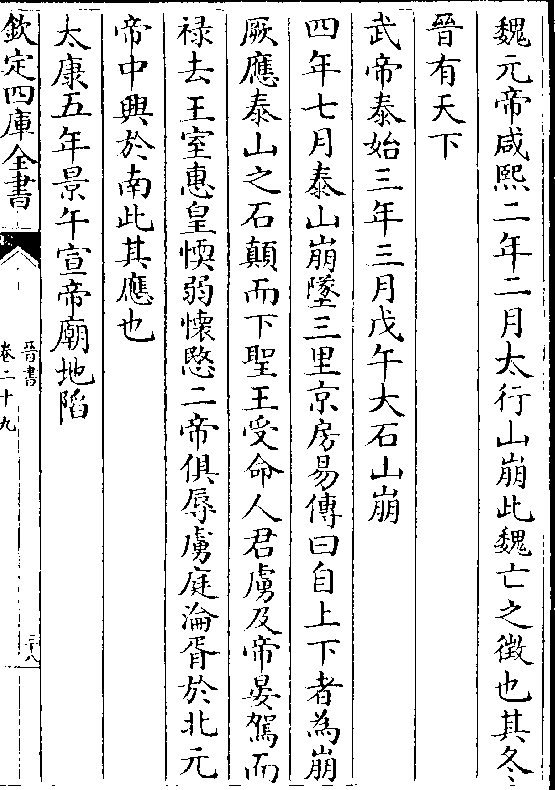 魏元帝咸熙二年二月太行山崩此魏亡之徵也其冬
晉有天下
武帝泰始三年三月戊午大石山崩
四年七月泰山崩墜三里京房易傳曰自上下者為崩
厥應泰山之石顛而下聖王受命人君虜及帝晏駕而
禄去王室惠皇愞弱懷愍二帝俱辱虜庭淪胥於北元
帝中興於南此其應也
太康五年景午宣帝廟地陷
欽定四庫全書
晉書
卷二十九
三十八